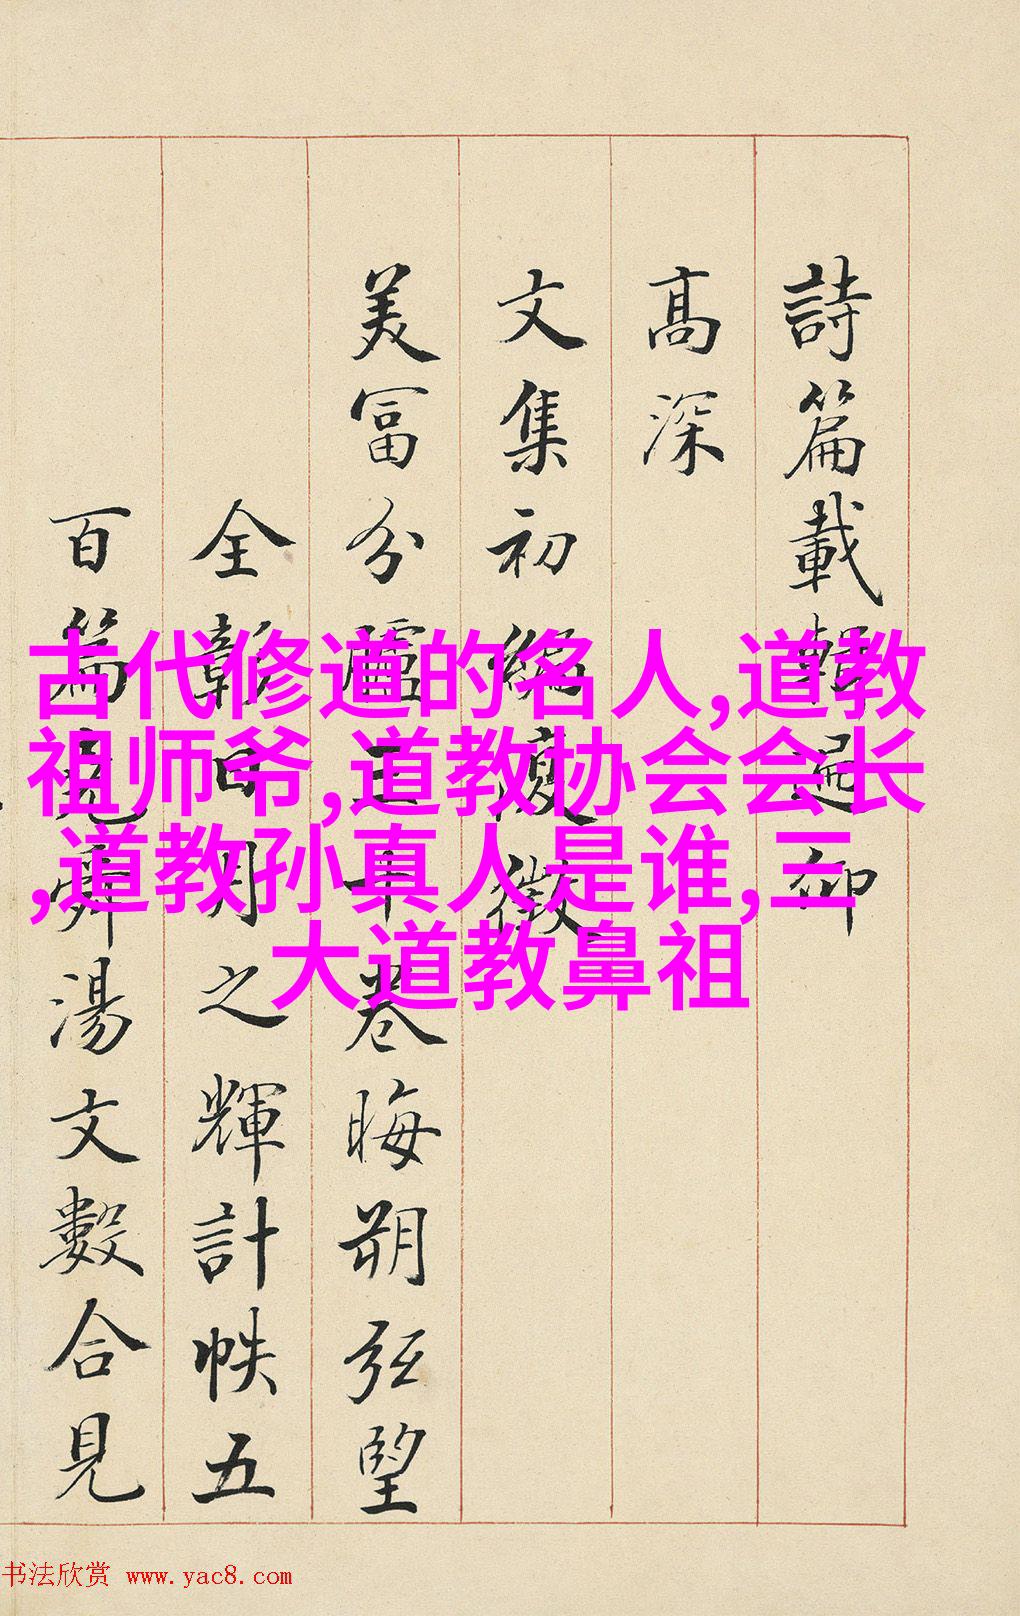 詩篇載仰
高深
文集初編徵
美富分臚十卷晦朔弦望
全彰日月之輝計帙五
百篇堯舜湯文數合見
古代修道的名人,道教
祖师爷,道教协会会长
,道教孙真人是谁,三
大道教鼻祖
书法欣赏 www.yac8.com